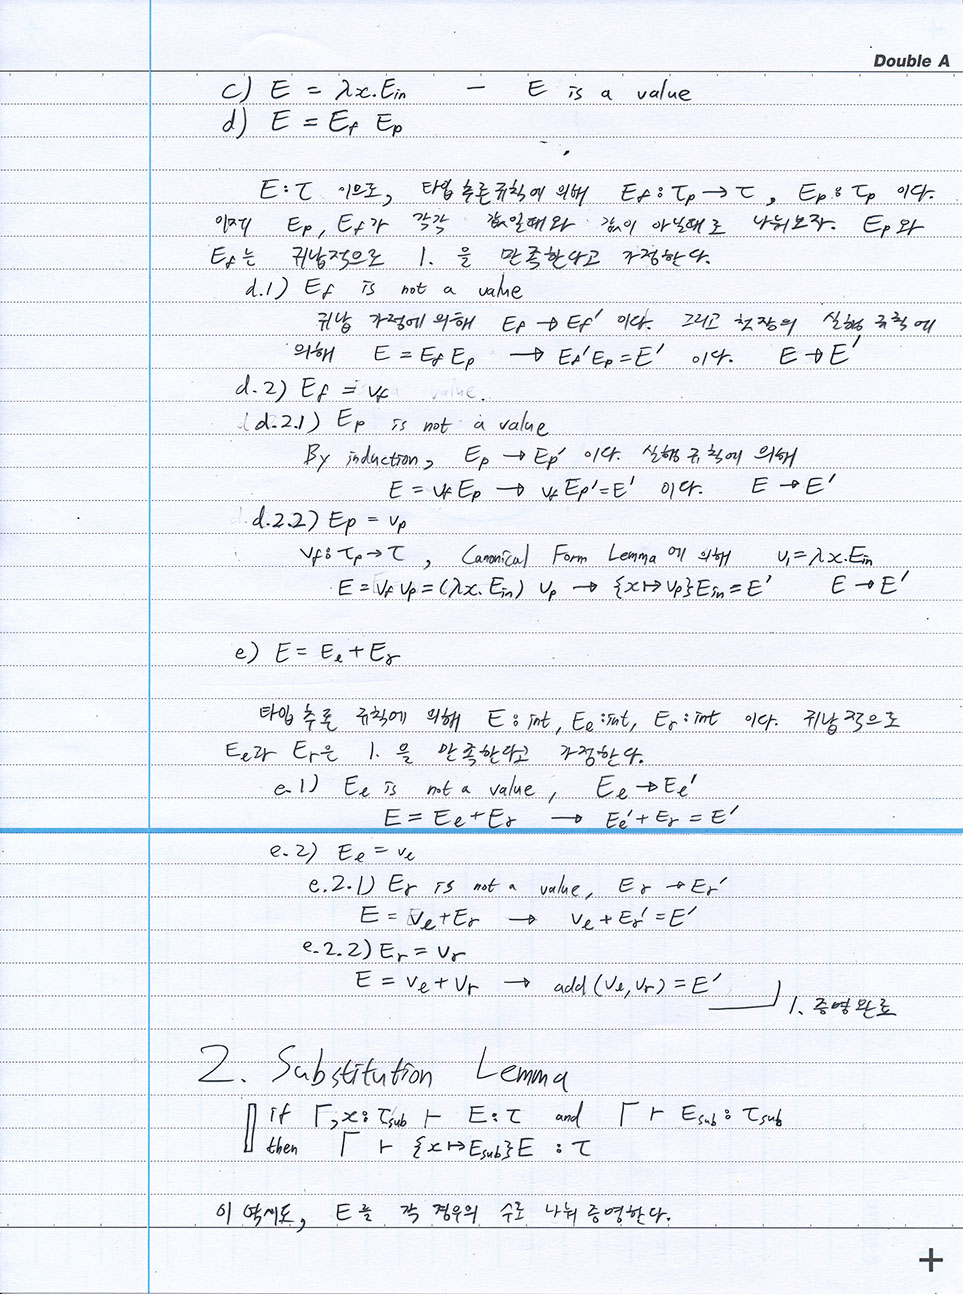 Double A
c) E = λx.E_in - E is a value
d) E = E_f E_p
E:τ 이므로, 타입 추론규칙에 의해 E_f:τ_p→τ, E_p:τ_p 이다.
이제 E_p, E_f가 각각 값일때와 값이 아닐때로 나눠보자. E_p와
E_f는 귀납적으로 1. 을 만족한다고 가정한다.
d.1) E_f is not a value
귀납 가정에 의해 E_f → E_f' 이다. 그리고 현장의 실행 규칙에
의해 E = E_f E_p → E_f' E_p = E' 이다. E → E'
d.2) E_f = v_f
d.2.1) E_p is not a value
By induction, E_p → E_p' 이다. 실행 규칙에 의해
E = v_f E_p → v_f E_p' = E' 이다. E → E'
d.2.2) E_p = v_p
v_f:τ_p→τ, Canonical Form Lemma에 의해 v_1=λx.E_in
E = v_f v_p = (λx.E_in) v_p → {x↦v_p}E_in = E' E → E'
e) E = E_e + E_r
타입 추론 규칙에 의해 E:int, E_e:int, E_r:int 이다. 귀납적으로
E_e과 E_r은 1. 을 만족한다고 가정한다.
e.1) E_e is not a value, E_e → E_e'
E = E_e + E_r → E_e' + E_r = E'
e.2) E_e = v_e
e.2.1) E_r is not a value, E_r → E_r'
E = v_e + E_r → v_e + E_r' = E'
e.2.2) E_r = v_r
E = v_e + v_r → add(v_e, v_r) = E'
1. 증명완료
2. Substitution Lemma
if Γ, x:τ_sub ⊢ E:τ and Γ ⊢ E_sub:τ_sub
then Γ ⊢ {x↦E_sub}E :τ
이 역시도, E를 각 경우의 수로 나눠 증명한다.